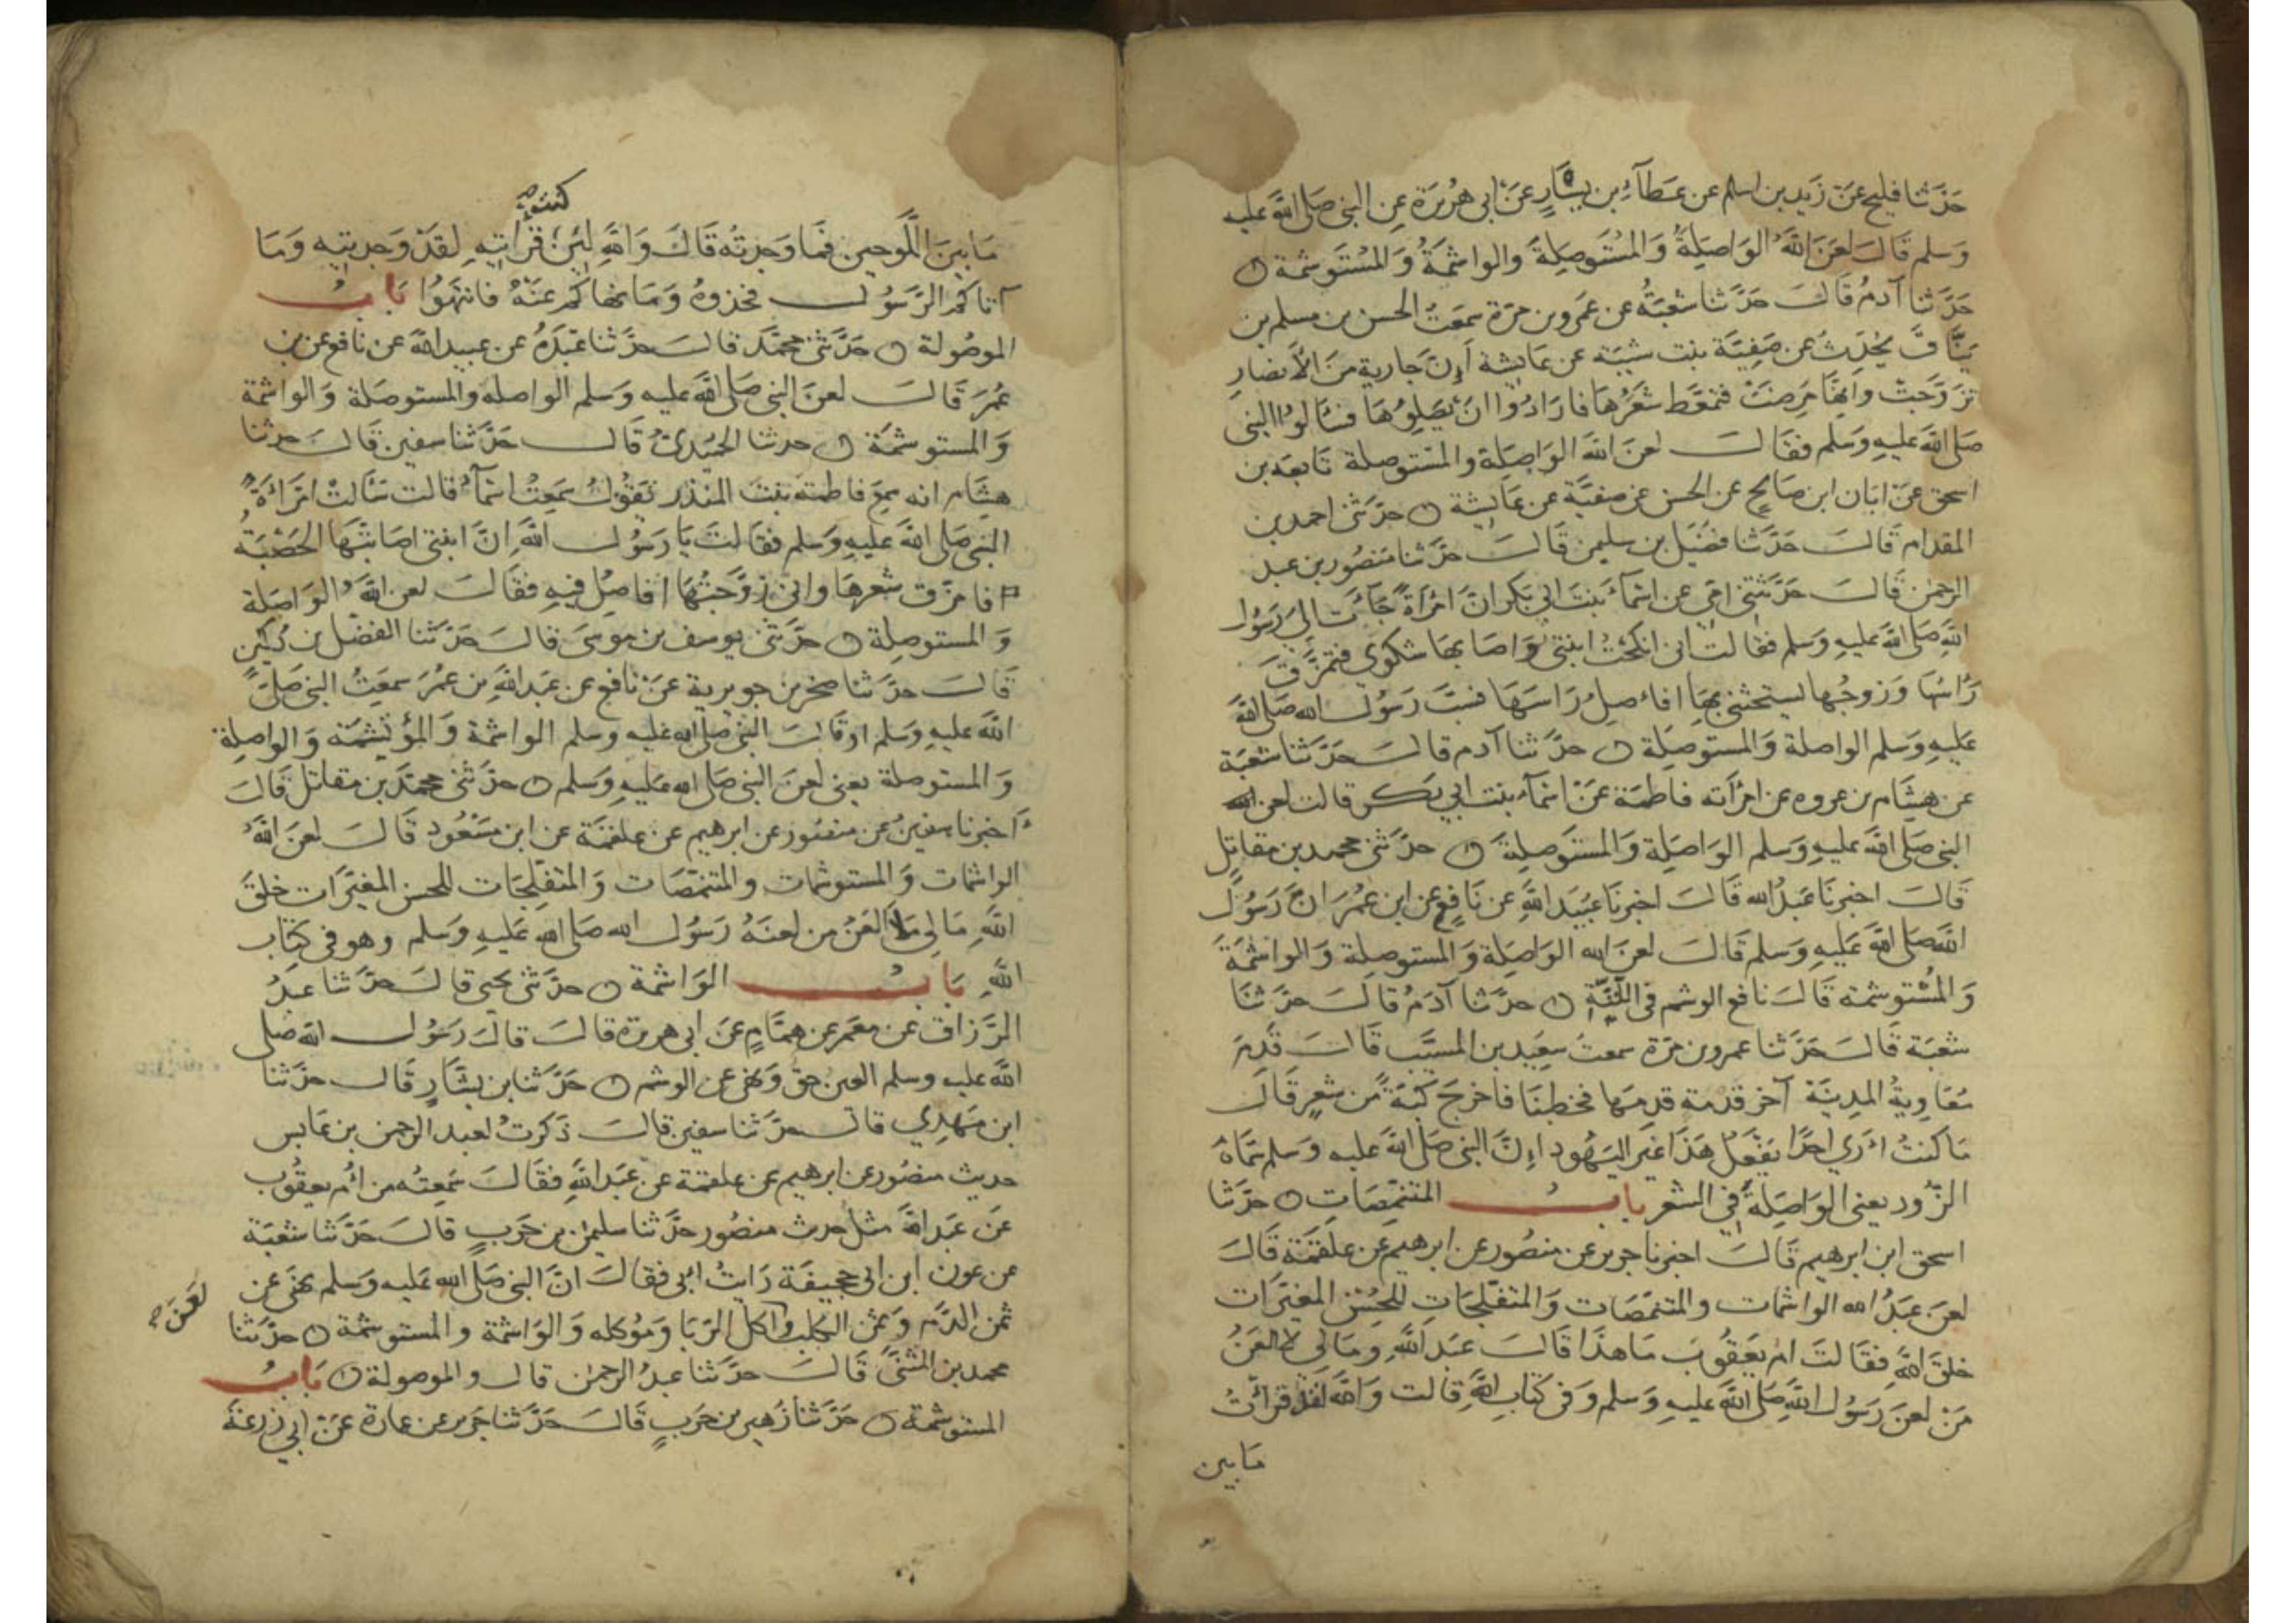 حَدَّثنا فليح عَن زَيد بن اسلم عن عَطآء بن يَسَارٍ عَن ابى هُرَيرَة عن النبى صَلى الله عليه
وَسلم قَالَ لعَنَ اللهُ الوَاصِلَةَ وَالمُستَوصِلَةَ والواشمَةُ وَالمُستَوشمة
حَدَّثنا آدمُ قَالَ حَدَّثنا شعْبَةُ عن عَمرو بن مرّة سمعَتُ الحسن بن مسلم بن
يَنَّاقٍ يُحَدِّث عن صَفِيَّة بنت شيبَة عن عَايشة اَنَّ جَارية منَ الأنصَارِ
تزَوَّجَتْ وانهَا مَرِضَتْ فتمعّط شعَرُهَا فارَادُوا انْ يَصَلِوُهَا فسَالوُا النبى
صَلى الله عليهِ وَسَلم فقَالَ لعنَ الله الوَاصِلَة والمسْتوصِلة تَابعَه بن
اسحق عَن ابَان ابن صَالِحٍ عن الحسن عن صفيَّة عن عَايشة حدَّثنى احمد بن
المقدام قَالَ حَدَّثنا فضَيل بن سليمن قَالَ حدَّثنا منصُور بن عبد
الرحمن قَالَ حَدَّثتنى امِّى عن اسمآءَ بنت ابى بَكر انَّ امْرَاةً جَآءَت الىَ رَسُول
اللهِ صَلى الله عليهِ وَسَلم فقَالت انى انكحْتُ ابنتى وَاصَابهَا شكوَى فتمزَّقَ
رَاسُهَا وَزوجُها يستحثنى بهَا افاصِلُ رَاسَهَا فسَبَّ رَسُول الله صَلى الله
عَليهِ وَسَلم الواصلة وَالمستَوصِلَة حدَّثنا آدم قالَ حَدَّثنا شعْبَة
عن هشَام بن عروه عن امرَاته فاطمَة عَن اسمآء بنت ابى بَكر قالت لعن
النبى صَلى الله عليهِ وَسَلم الوَاصِلَة وَالمستَوصِلَة حدَّثنى محمد بن مقاتِل
قَالَ اخبرنَا عَبدُ الله قَالَ اخبرنَا عبَيد اللهِ عن نَافِع عن ابن عمُرَ انَّ رَسُولَ
اللهِ صَلى الله عَليهِ وَسَلم قَالَ لعنَ الله الوَاصِلَة وَالمستوصِلة وَالواشمَةَ
وَالمُسْتوشمَة قَالَ نافع الوشم فى اللِّثةِ حدَّثنا آدَمُ قالَ حَدَّثنَا
شعْبَة قَالَ حَدَّثنا عَمرو بن مرّة سمعتُ سعِيَد بن المسَيَّب قَالَ قَدِمَ
مُعَاوِيةُ المدِينَة آخر قَدْمَة قدِمَهَا فخطبَنَا فاخرَجَ كبَّةً من شعرٍ قَالَ
مَا كنتُ ارَى احَدًا يَفْعَلُ هَذَا غيَر اليَهُود اِنَّ النبى صَلى الله عليه وَسلم سَمَّاهُ
الزُّورَ يعنى الوَاصِلَةَ فى الشعَر بابُ المتنمِّصَاتِ حدَّثنا
اسحق ابن ابرهيم قَالَ اخبرنا جرير عن منصُور عن ابرهيم عن علقَمَة قَالَ
لعنَ عَبدُ الله الواشمات والمتنمِّصَات وَالمتفلِّجَاتِ للحُسْن المغيَّرات
خلقَ اللهِ فقَالتَ ام يَعقُوبَ مَا هذَا قَالَ عَبَد اللهِ وَمَا لى لا العَنُ
مَنْ لعنَ رَسُول اللهِ صَلى الله عليهِ وَسَلم وَفى كتاب اللهِ قالت وَالله لقَد قرَاتُ
مَا بين
كنت
مَا بَينَ اللَّوحين فمَا وَجدتُه قَالَ وَاللهِ لئن قرَاتيهِ لقَدْ وَجدتيه وَمَا
آتاكمُ الرَّسَوُل فخذوهُ وَمَا نهاكمُ عَنْهُ فانتهَوُا بَابُ
الموصُولة حَدَّثنى محمَّد قالَ حَدَّثنا عَبْدَةُ عن عبيد الله عن نافع عن بن
عُمرَ قَالَ لعنَ النبى صَلى الله عليه وَسَلم الواصله والمستوصَلة وَالواشمة
وَالمستوشمَة حدثنا الحُمَيدىُّ قَالَ حَدَّثنا سفين قَالَ حدثنا
هشَام انه سمِع فاطمة بنتَ المنذر تقُولُ سَمعَتْ اسمآءَ قالت سَالتْ امْرَاةُ
النبى صَلى الله عَليهِ وَسَلم فقَالتَ يَا رَسَوُل اللهِ انَّ ابنتى اصَابتْهَا الحَصْبَةُ
فامَّرَقَ شعَرهَا وانى زوَّجتُهَا افاصِلُ فيهِ فقَالَ لعن اللهُ الوَاصَلة
وَالمستوصِلة حدَّثنى يوسف بن موسَى قالَ حَدَّثنا الفضْل بن دُكَين
قَالَ حدَّثنا صخر بن جويرية عَن نافع عن عبَد اللهِ بن عمُرَ سمعَتُ النبى صَلىَّ
الله عليهِ وَسَلم او قَالَ النبى صلى الله عليه وسلم الواشمَة وَالمؤتشمَة وَالواصِلة
وَالمستوصلة يعنى لعنَ النبى صَلى الله عليهِ وَسلم حدَّثنى محمَّد بن مقاتل قَالَ
اخبرنا سفين عن منصُور عن ابرهيم عن علقمَة عن ابن مَسْعُود قَالَ لعَن اللهُ
الواشمَات وَالمستوشمات والمتنمِّصَات وَالمتفلِّجَات للحسن المغيَّرات خلقَ
اللهِ مَا لى لا العَنُ من لعنَهُ رَسُول الله صَلى اللهِ عَليهِ وَسَلم وهو فى كتاب
اللهِ بَابُ الوَاشمة حدَّثنى يحيى قالَ حَدَّثنا عبدُ
الرَّزاق عن معمَر عن همَّامٍ عَن ابى هريرة قالَ قالَ رَسُول الله صلى
الله عليه وسلم العين حقّ وَنهى عن الوشم حَدَّثنا بن بشَّارٍ قَالَ حَدَّثنا
ابن مَهدِي قالَ حدَّثنا سفين قالَ ذكرتُ لعبد الرحمن بن عَابس
حديث منصُور عن ابرهيم عن علقمَة عن عَبد اللهِ فقَالَ سَمعتُه من امُ يعقُوب
عَن عَبَد الله مثلَ حديث منصُور حدَّثنا سليمَن بن حَربٍ قالَ حَدَّثنا شعْبَة
عن عون ابن ابى جحيفَة رَايْتُ ابَى فقالَ انَّ النبى صَلى الله عَليه وَسَلم نهَى عن
ثمن الدَّم وَثمن الكلب وآكل الرّبَا وَمُوكله وَالوَاشمة والمستوشمَة حَدَّثنا
لَعَنَ صح
محمد بن المثنىَّ قَالَ حدَّثنا عبدُ الرحمن قال والموصولة بَابُ
المستوشمة حَدَّثنا زُهير بن حَربٍ قَالَ حَدَّثنا جَرير عن عمارة عَن ابى زرعَة